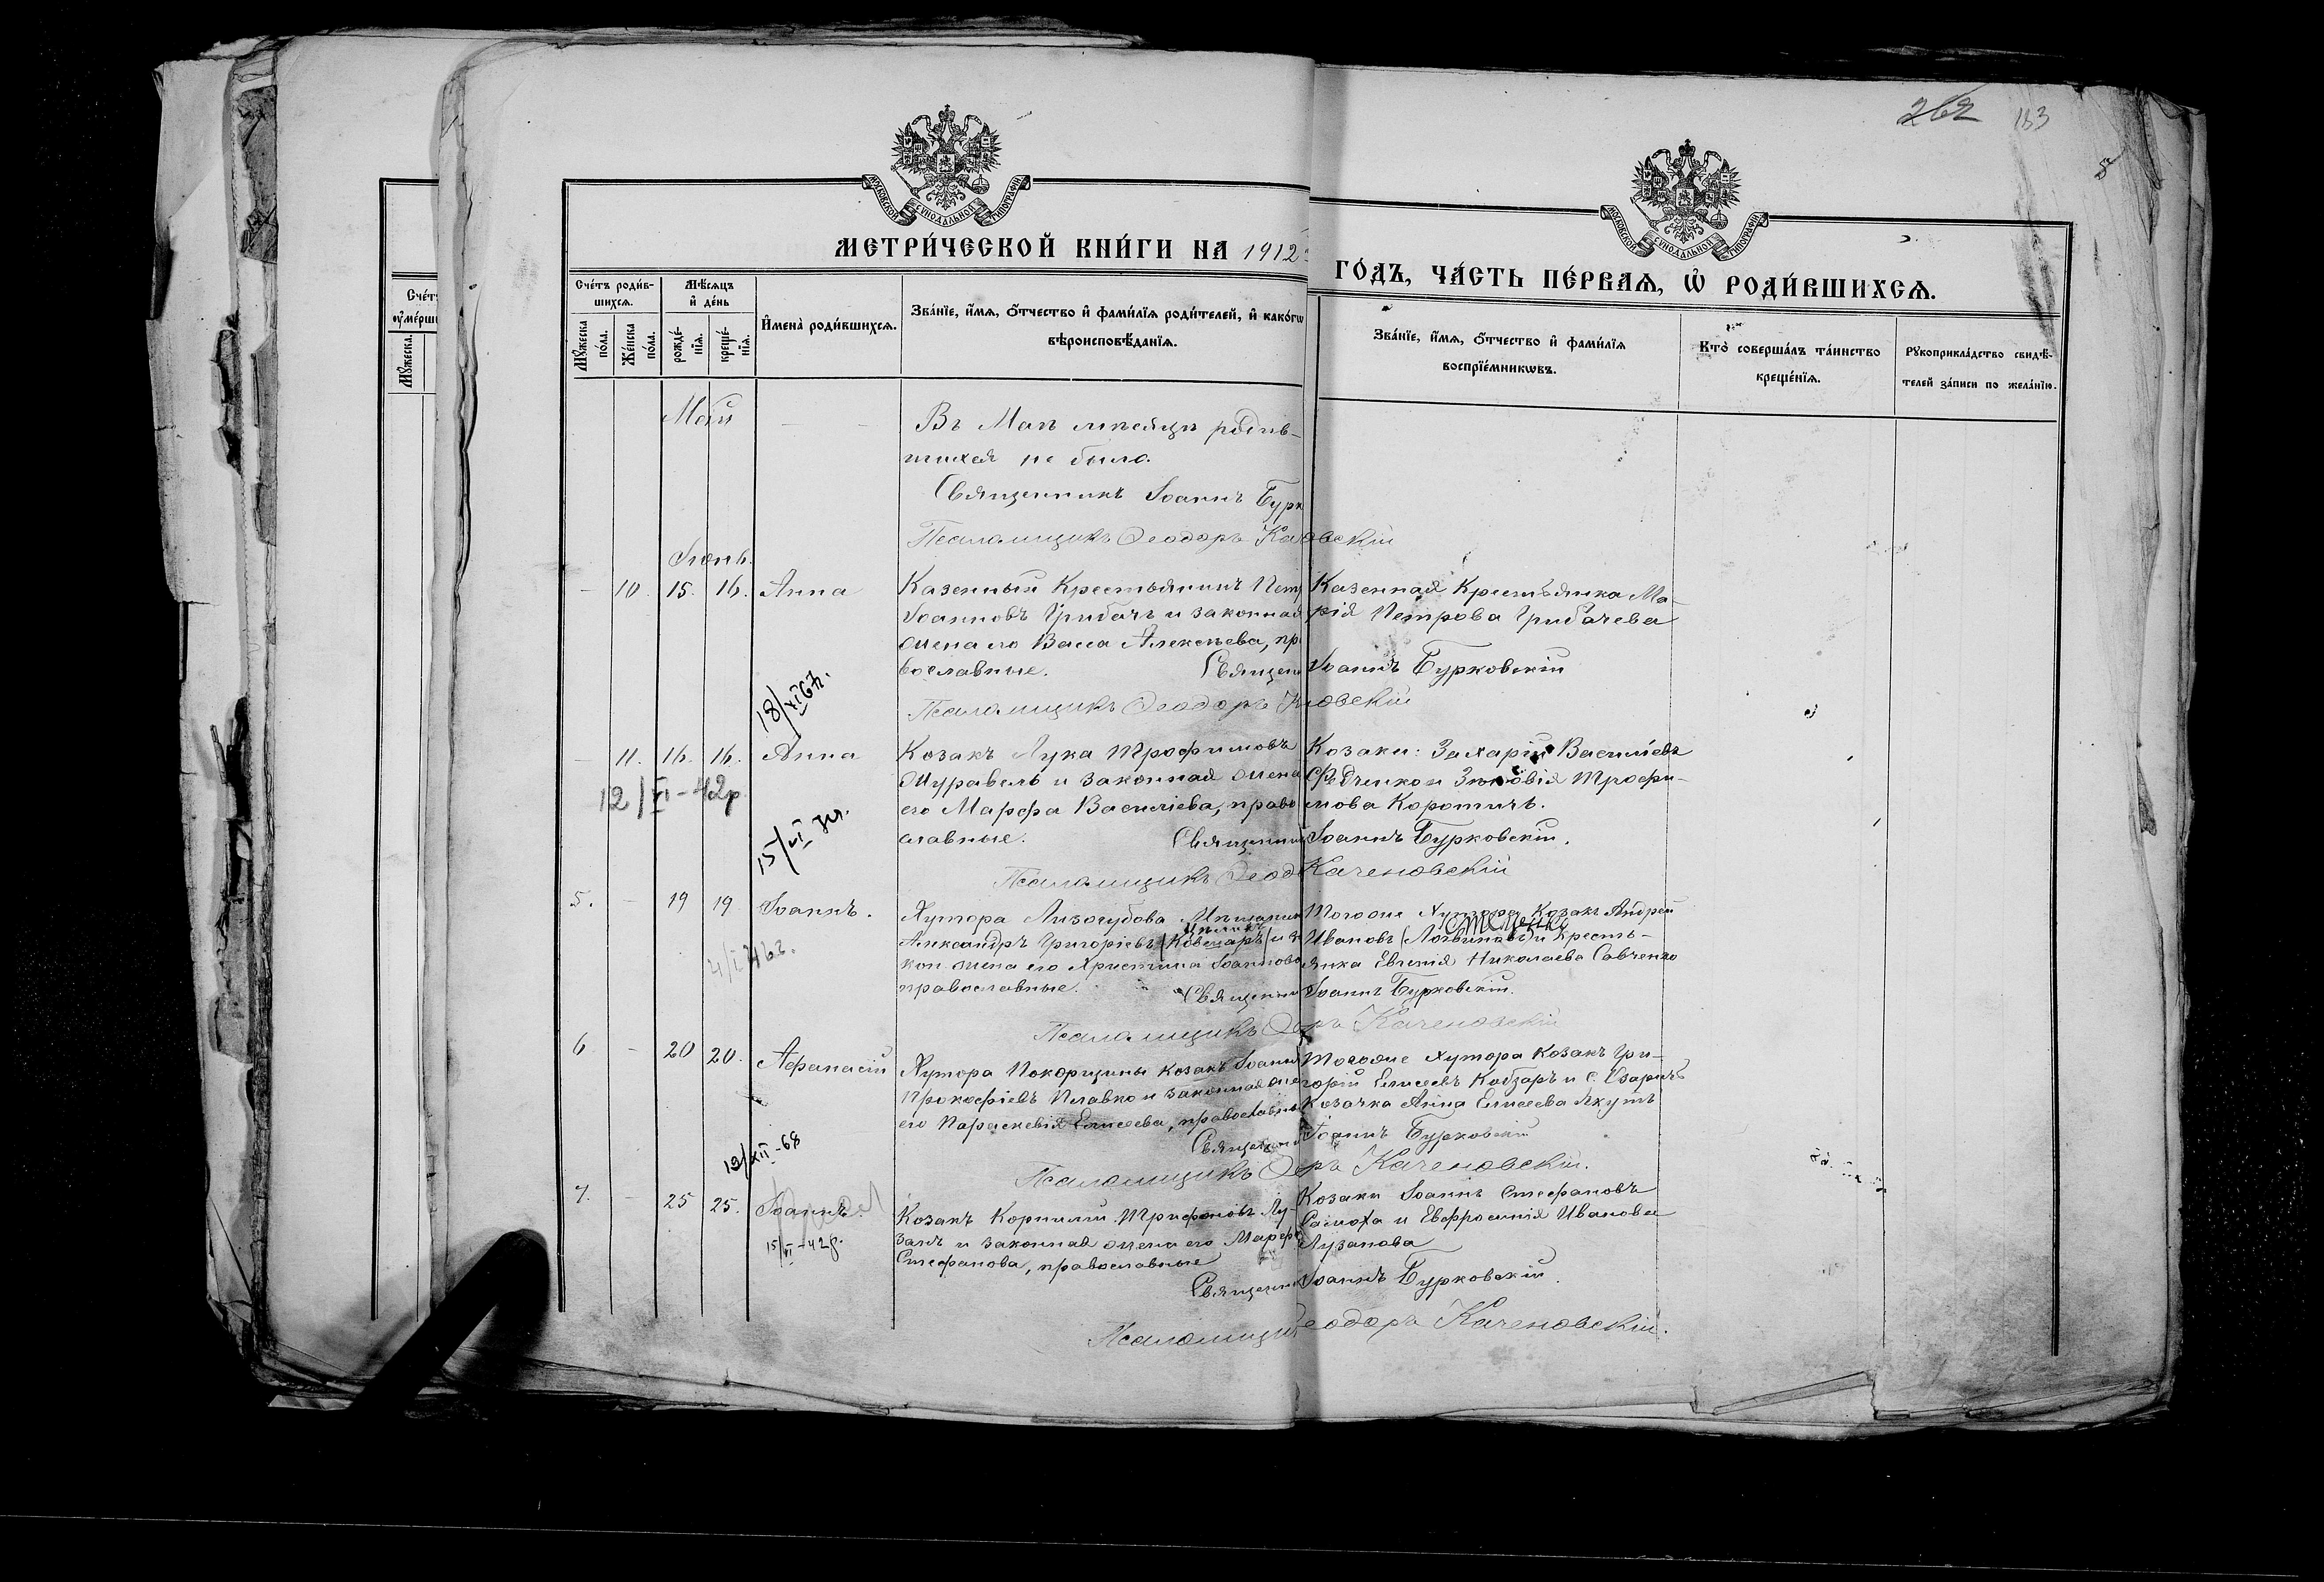 262 183
МОСКОВСКОЙ СѴНОДАЛЬНОЙ ТИПОГРАФІИ
МОСКОВСКОЙ СѴНОДАЛЬНОЙ ТИПОГРАФІИ
МЕТРИ́ЧЕСКОЙ КНИ́ГИ НА 1912
ГО́ДЪ, ЧА́СТЬ ПЕ́РВАѦ, Ѡ҆ РОДИ́ВШИХСѦ.
Сче́тъ роди́в-
шихсѧ.
Мꙋ́жеска по́ла.
Же́нска по́ла.
Мѣ́сѧцъ
и҆ де́нь
рожде́-
нїѧ.
креще́-
нїѧ.
И҆мена̀ роди́вшихсѧ.
Зва́нїе, и҆́мѧ, ѻ҆́тчество и҆ фами́лїѧ роди́телей, и҆ како́гѡ
вѣроисповѣ́данїѧ.
Зва́нїе, и҆́мѧ, ѻ҆́тчество и҆ фами́лїѧ
воспрїе́мникѡвъ.
Кто̀ соверша́лъ та́инство
креще́нїѧ.
Рꙋкоприкла́дство свидѣ́-
телей за́писи по жела́нїю.
Май
Въ Маѣ мѣсяцѣ родив-
шихся не было.
Священникъ Іоаннъ Бурк
Псаломщикъ Ѳеодоръ
Іюнь.
- 10. 15. 16. Анна
Казенный Крестьянинъ Петр
Іоанновъ Грибачъ и законная
жена его Васса Алексѣева, пр
вославные. Священ
Казенная Крестьянка Ма-
рія Петрова Грибачева
Іоаннъ Бурковскій
Псаломщикъ Ѳеодоръ
18/XI 67г.
- 11. 16. 16. Анна
12/VI-42р
Козакъ Лука Трофимовъ
Журавель и законная жена
его Марфа Василіева, право
славные. Священник
Козаки: Захарій Василіевъ
Федченко и Зиновія Трофи-
мова Коротичъ.
Іоаннъ Бурковскій.
Псаломщикъ Ѳеод Каченовскій
5. - 19 19 Іоаннъ.
Хутора Лизогубова Мѣщанин
Александръ Григоріевъ и за
кон. жена его Христина Іоаннова
православные. Священни
Тогоже Хутора Козакъ Андрей
Ивановъ (Логвиновъ) и Кресть-
янка Евгенія Николаева Савченко
Іоаннъ Бурковскій.
Псаломщикъ Ѳео ръ Каченовскій
6 - 20 20. Афанасій
Хутора Покорщины Козакъ Іоаннъ
Прокофіевъ Плавко и законная же
его Параскевія Елисеева, православны
Священни
Тогоже Хутора Козакъ Гри-
горій Елисеевъ Кобзаръ и с.
Козачка Анна Елисеева Якутъ
Іоаннъ Бурковскій
Псаломщикъ Ѳео ръ Каченовскій.
19/XII-68
7. - 25 25. Іоаннъ.
15/VI-42р.
Козакъ Корнилій Трифоновъ Лу-
занъ и законная жена его Марфа
Стефанова, православные
Священни
Козаки Іоаннъ Стефановъ
Самоха и Евфросинія Иванова
Лузанова
Іоаннъ Бурковскій.
Псаломщик еодоръ Каченовскій.